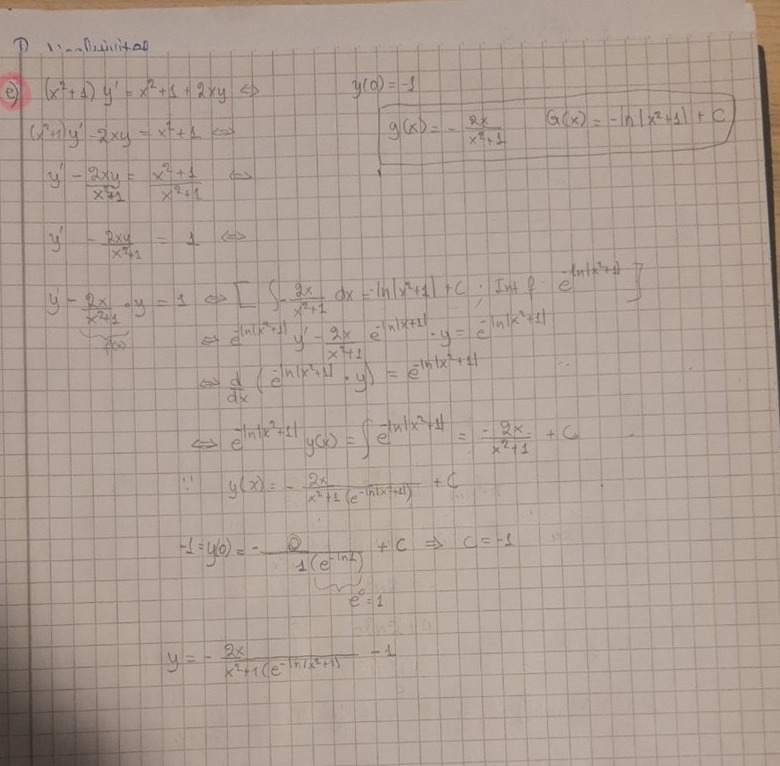 e) (x²+1) y' = x²+1+2xy ⇔ y(0) = -1
(x²+1)y' - 2xy = x²+1 ⇔ g(x) = - 2x/x²+1 G(x) = -ln|x²+1| + C
y' - 2xy/x²+1 = x²+1/x²+1 ⇔
y' - 2xy/x²+1 = 1 ⇔
y' - 2x/x²+1 · y = 1 ⇔ [ ∫ - 2x/x²+1 dx = -ln|x²+1| + C ; Int f e^-ln|x²+1| ]
⇔ e^-ln|x²+1| y' - 2x/x²+1 e^-ln|x+1| · y = e^-ln|x²+1|
⇔ d/dx (e^-ln|x²+1| · y) = e^-ln|x²+1|
⇔ e^-ln|x²+1| y(x) = ∫ e^-ln|x²+1| = - 2x/x²+1 + C
∵ y(x) = - 2x/x²+1(e^-ln|x²+1|) + C
-1 = y(0) = - 0/1(e^-ln1) + C ⇒ C = -1
e⁰ = 1
y = - 2x/x²+1(e^-ln|x²+1|) - 1